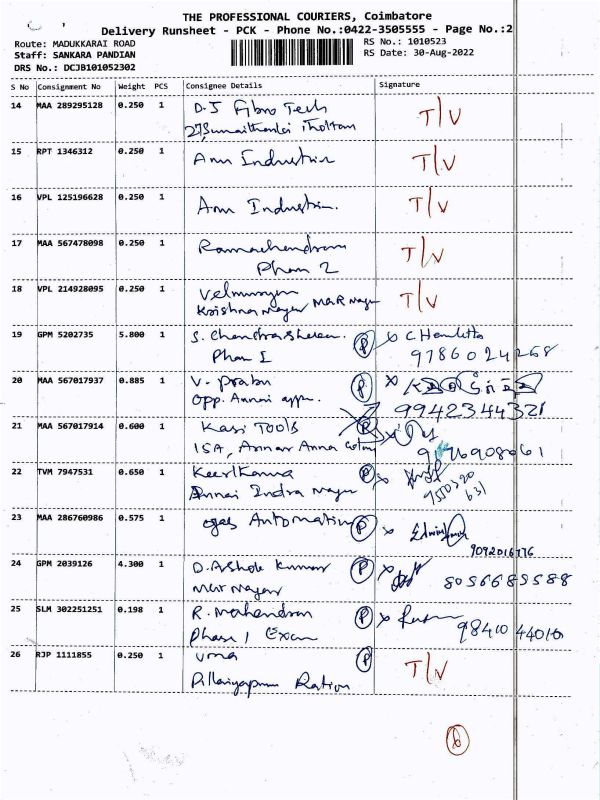 THE PROFESSIONAL COURIERS, Coimbatore
Delivery Runsheet - PCK - Phone No.:0422-3505555 - Page No.:2
Route: MADUKKARAI ROAD
RS No.: 1010523
Staff: SANKARA PANDIAN
RS Date: 30-Aug-2022
DRS No.: DCJB101052302
S No Consignment No Weight PCS Consignee Details Signature
14 MAA 289295128 0.250 1 D.J Fibro Tech T/V
15 RPT 1346312 0.250 1 T/V
16 VPL 125196628 0.250 1 T/V
17 MAA 567478098 0.250 1 Ramachandran T/V
Phase 2
18 VPL 214928095 0.250 1 Velmurugan T/V
Krishna Nagar MGR Nagar
19 GPM 5202735 5.800 1 S. Chandrasekaran P x
Phase I 9786024268
20 MAA 567017937 0.885 1 V. Prabu P x
Opp. Annai 9942344321
21 MAA 567017914 0.600 1 Kasi Tools P x
15A, Annai Anna Colony
22 TVM 7947531 0.650 1 Keerthana P x
Annai Indra Nagar
23 MAA 286760986 0.575 1 Automation P x
9092016776
24 GPM 2039126 4.300 1 D. Ashok Kumar P x
MGR Nagar 8056685588
25 SLM 302251251 0.198 1 R. Mahendran P x
Phase 1 9841044010
26 RJP 1111855 0.250 1 Uma P T/V
Ration
6